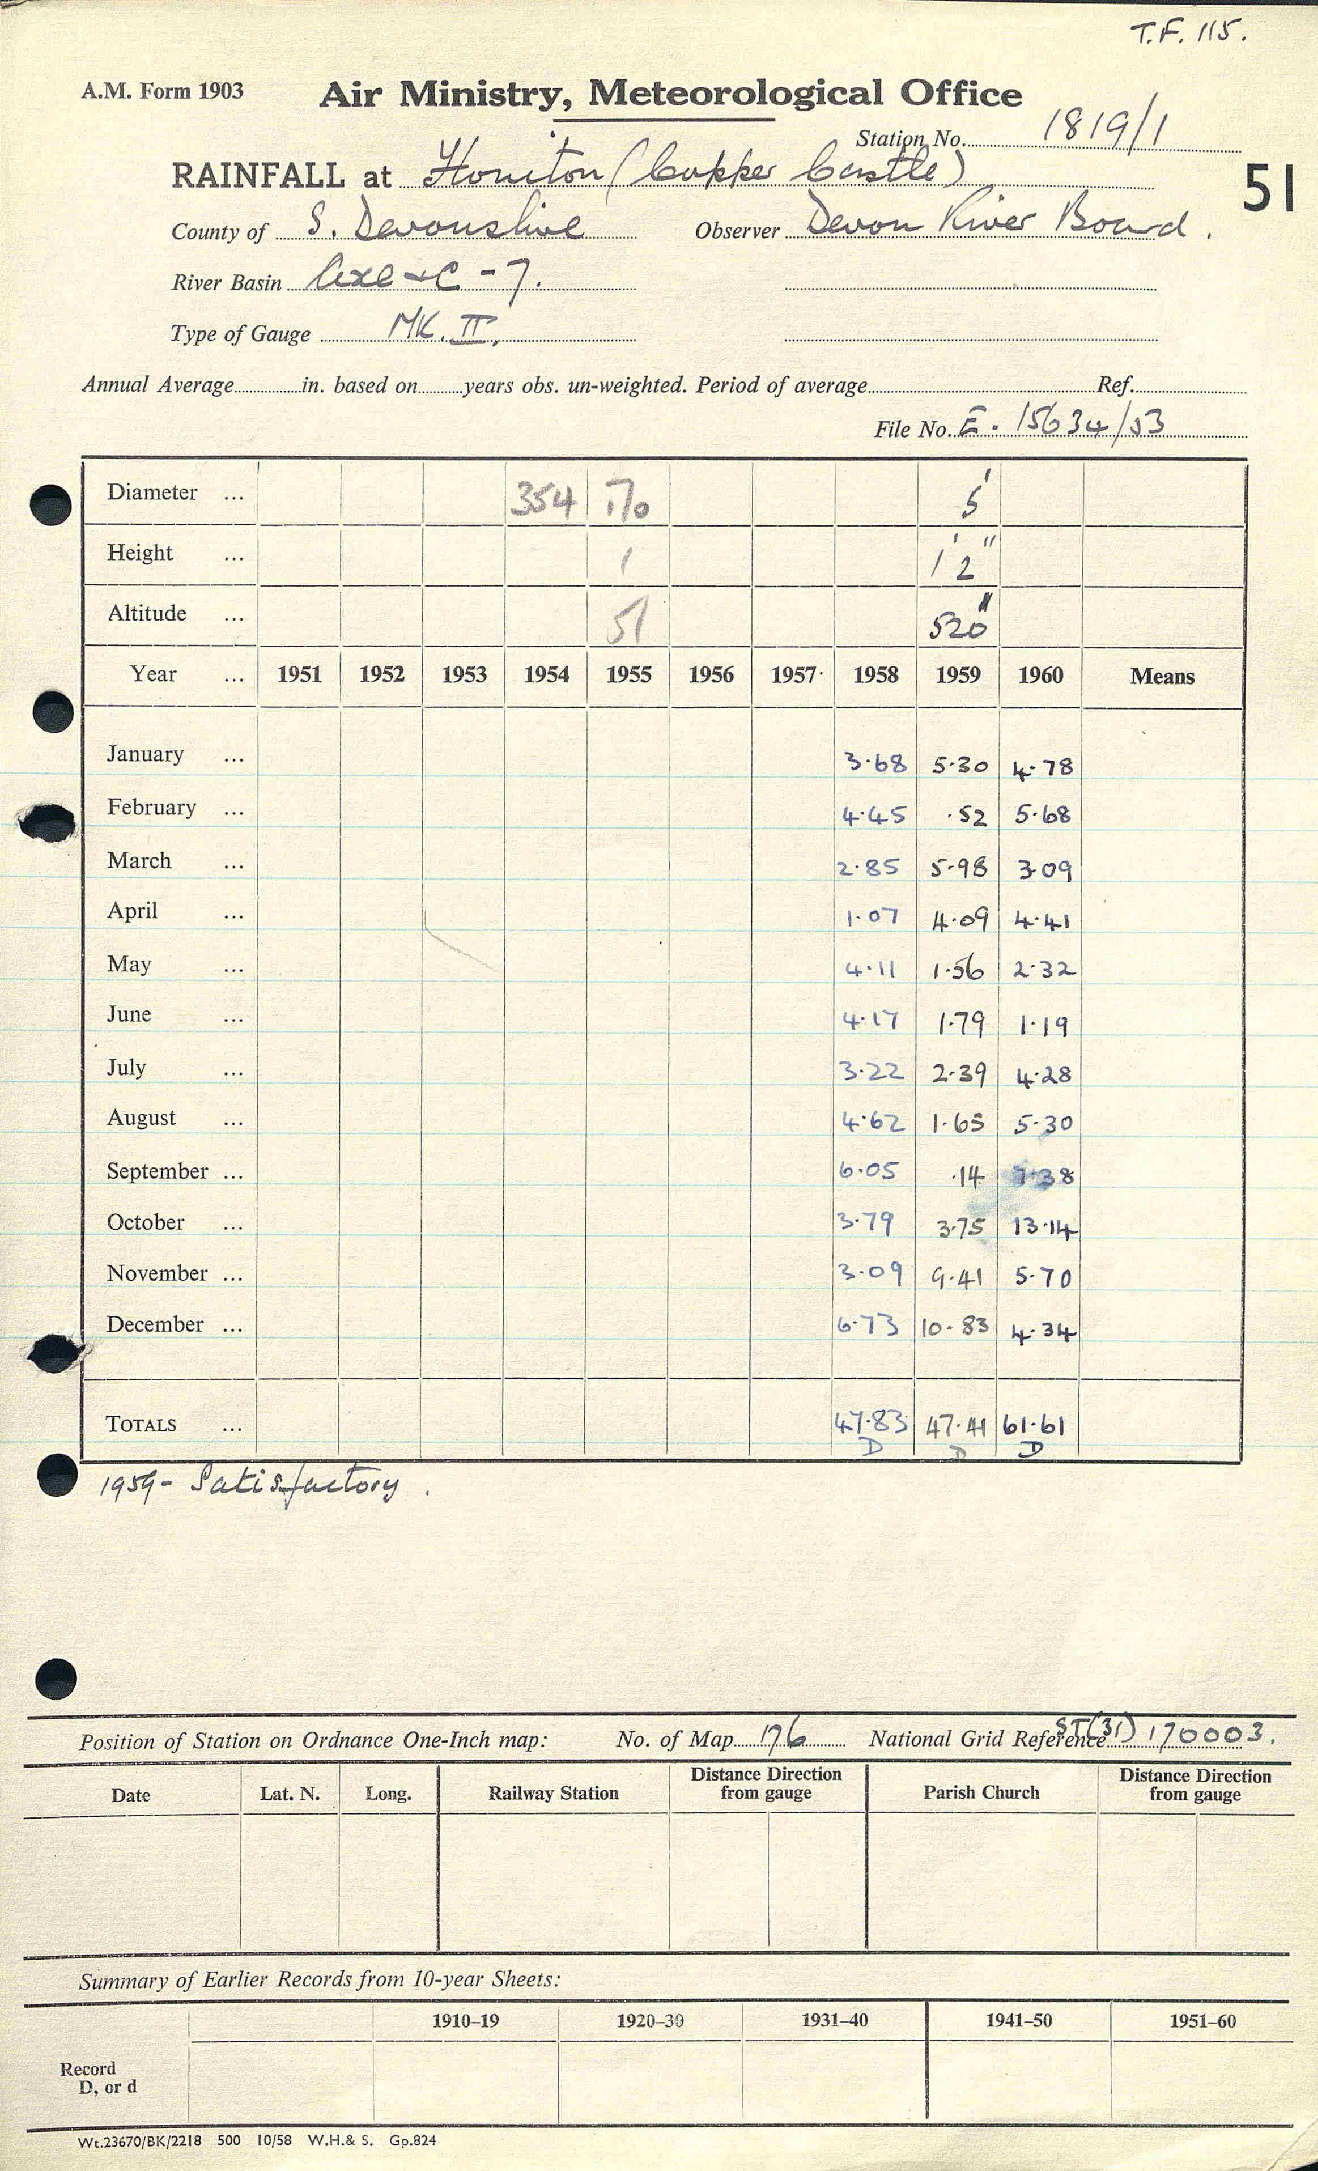 T.F. 115.
A.M. Form 1903 Air Ministry, Meteorological Office
Station No. 1819/1
RAINFALL at Honiton (Cupper Castle) 51
County of S. Devonshire Observer Devon River Board.
River Basin Axe &c - 7.
Type of Gauge MK. II.
Annual Average in. based on years obs. un-weighted. Period of average Ref.
File No. E. 15634/53
Diameter ... 354 170 5'
Height ... 1 1' 2"
Altitude ... 51 520"
Year ... 1951 1952 1953 1954 1955 1956 1957 1958 1959 1960 Means
January ... 3.68 5.30 4.78
February ... 4.45 .52 5.68
March ... 2.85 5.98 3.09
April ... 1.07 4.09 4.41
May ... 4.11 1.56 2.32
June ... 4.17 1.79 1.19
July ... 3.22 2.39 4.28
August ... 4.62 1.65 5.30
September ... 6.05 .14 7.38
October ... 3.79 3.75 13.14
November ... 3.09 9.41 5.70
December ... 6.73 10.83 4.34
TOTALS ... 47.83 47.41 61.61
D D D
1959 - Satisfactory.
Position of Station on Ordnance One-Inch map: No. of Map 176 National Grid Reference ST(31) 170003.
Date Lat. N. Long. Railway Station Distance Direction from gauge Parish Church Distance Direction from gauge
Summary of Earlier Records from 10-year Sheets:
1910–19 1920–30 1931–40 1941–50 1951–60
Record
D, or d
Wt.23670/BK/2218 500 10/58 W.H.& S. Gp.824